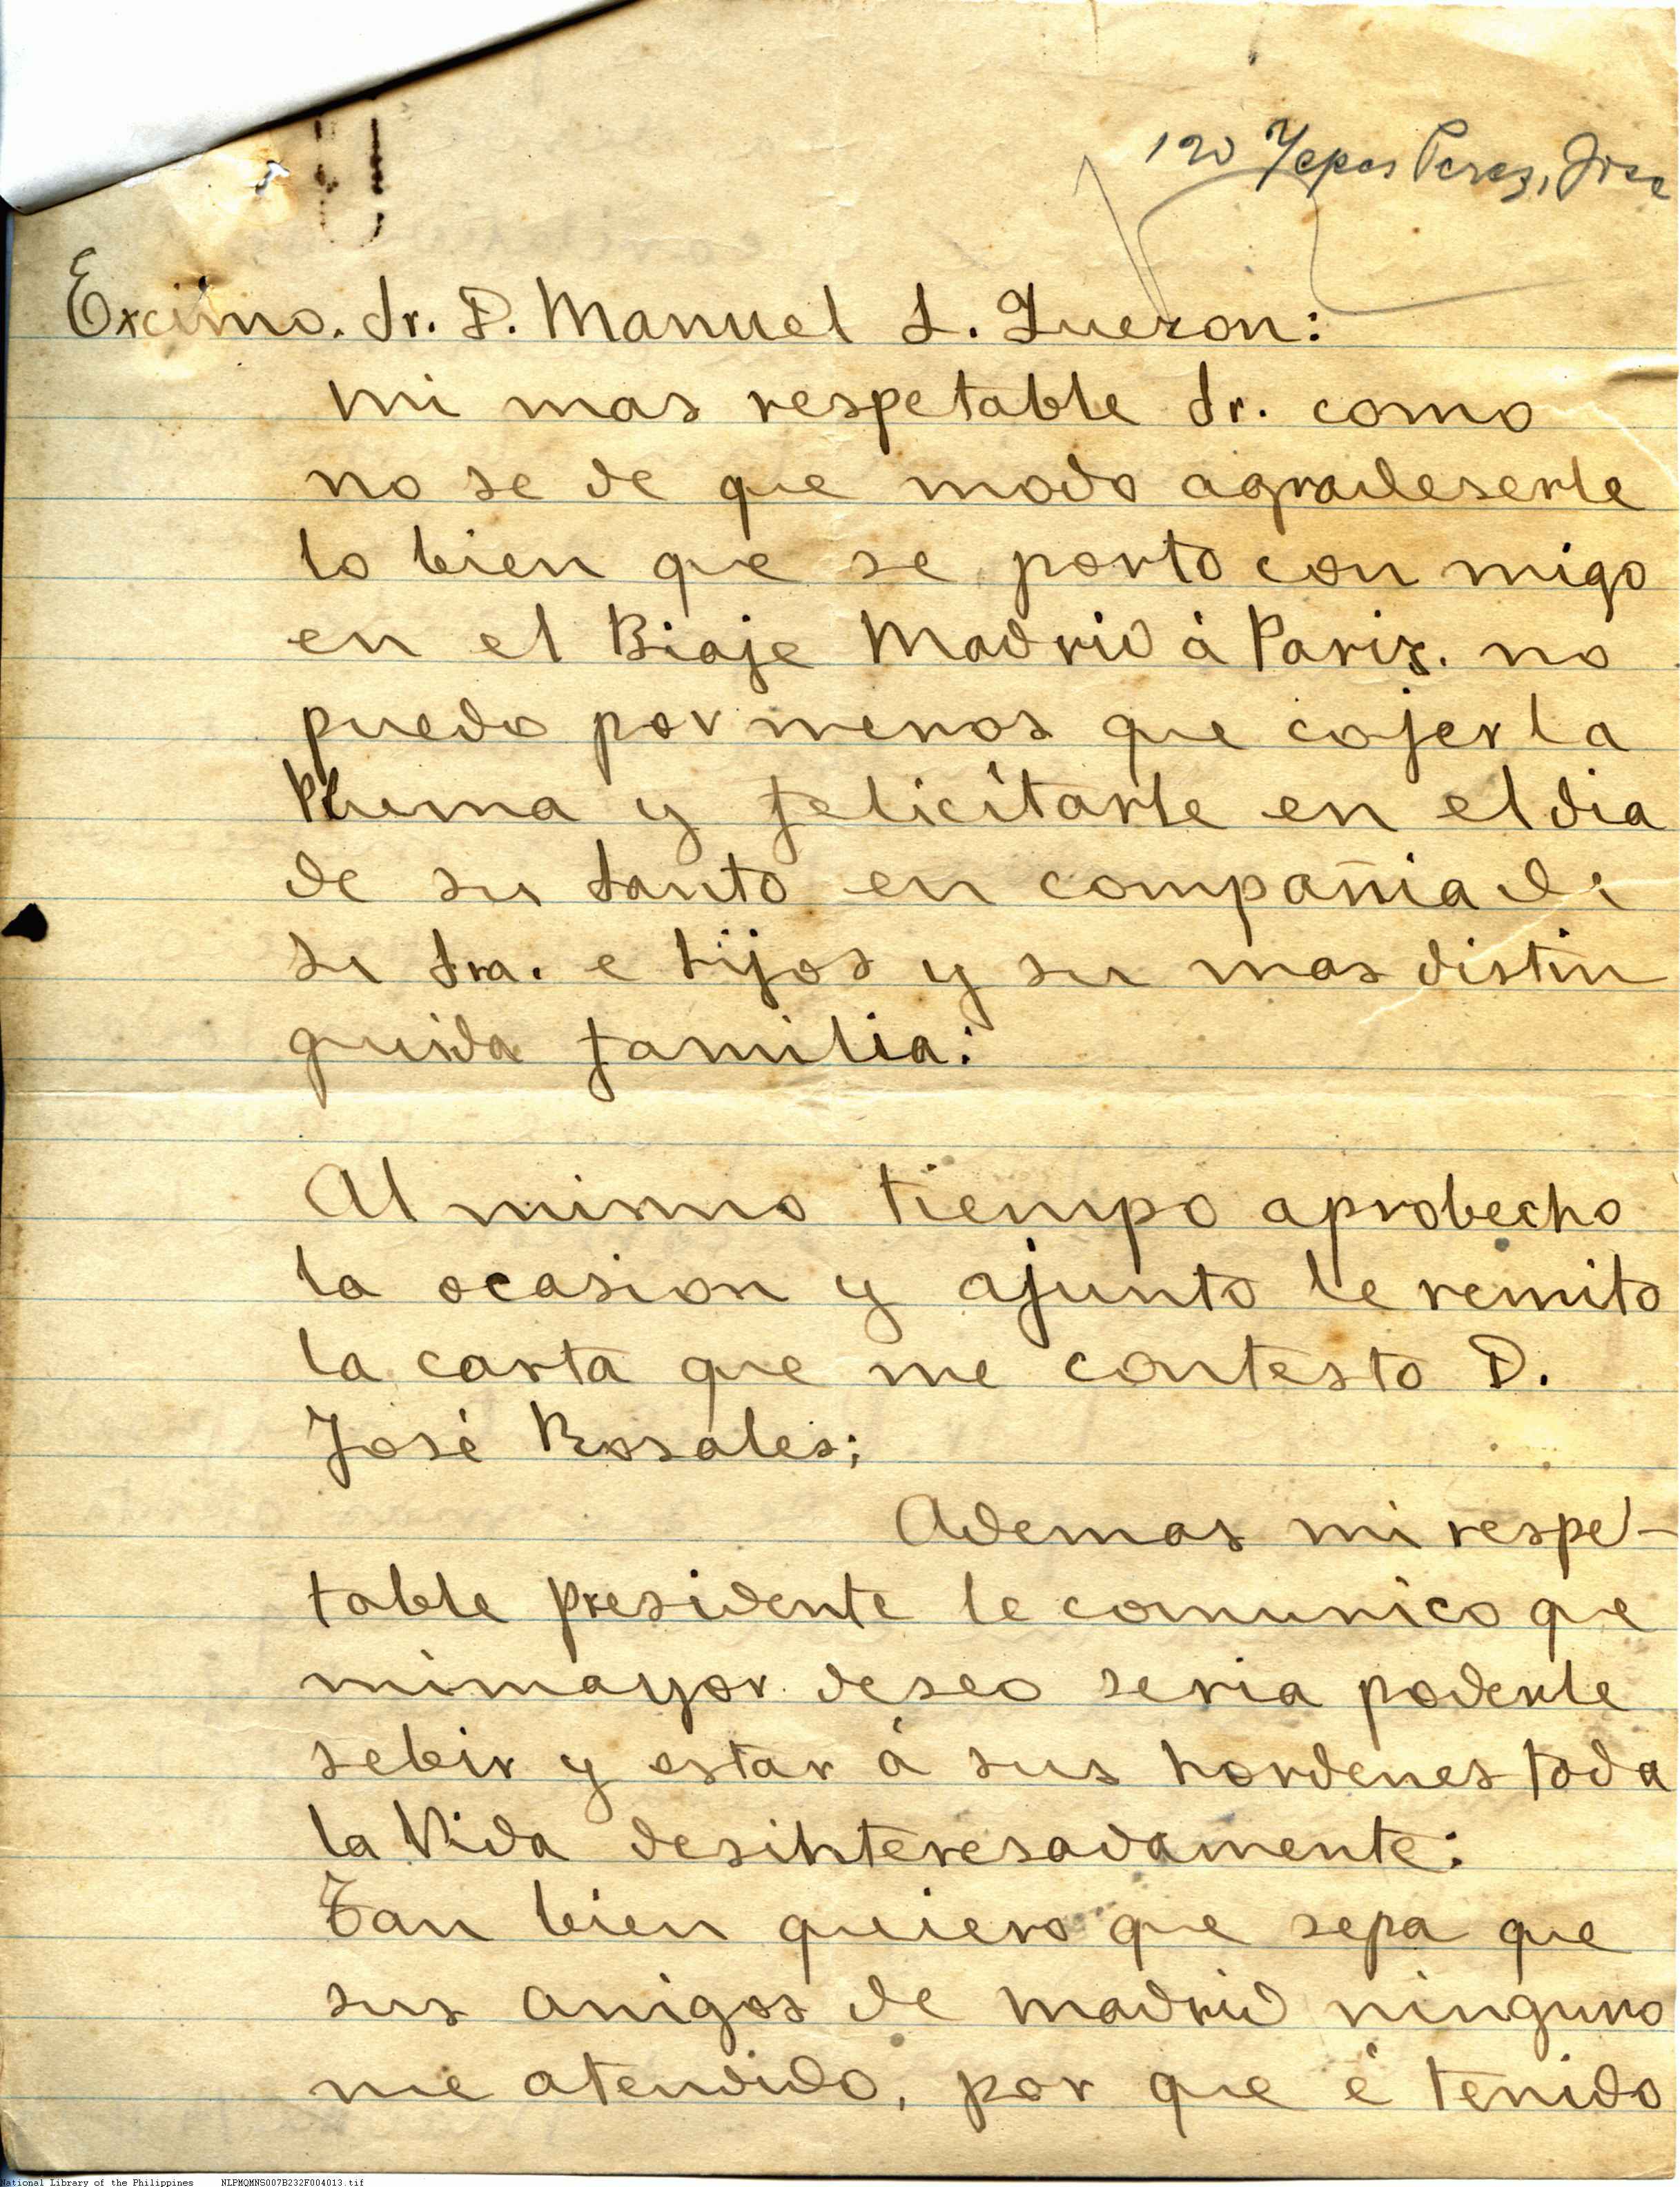 120 Yepes Perez, Jose
Excimo. Sr. D. Manuel L. Quezon:
Mi mas respetable Sr. como
no se de que modo agradeserle
lo bien que se porto con migo
en el Biaje Madrid á Pariz. no
puedo por menos que cojer la
Pluma y felicitarle en el dia
de su Santo en compañia de
su Sra. e hijos y su mas distin
guida familia:
Al mismo tiempo aprobecho
la ocasion y ajunto le remito
la carta que me contesto D.
José Rosales;
Ademas mi respe-
table presidente le comunico que
mi mayor deseo seria poderle
sebir y estar á sus hordenes toda
la Vida desinteresadamente:
Tan bien quiero que sepa que
sus amigos de Madrid ninguno
me atendido, por que é tenido
National Library of the Philippines NLPMQMNS007B232F004013.tif